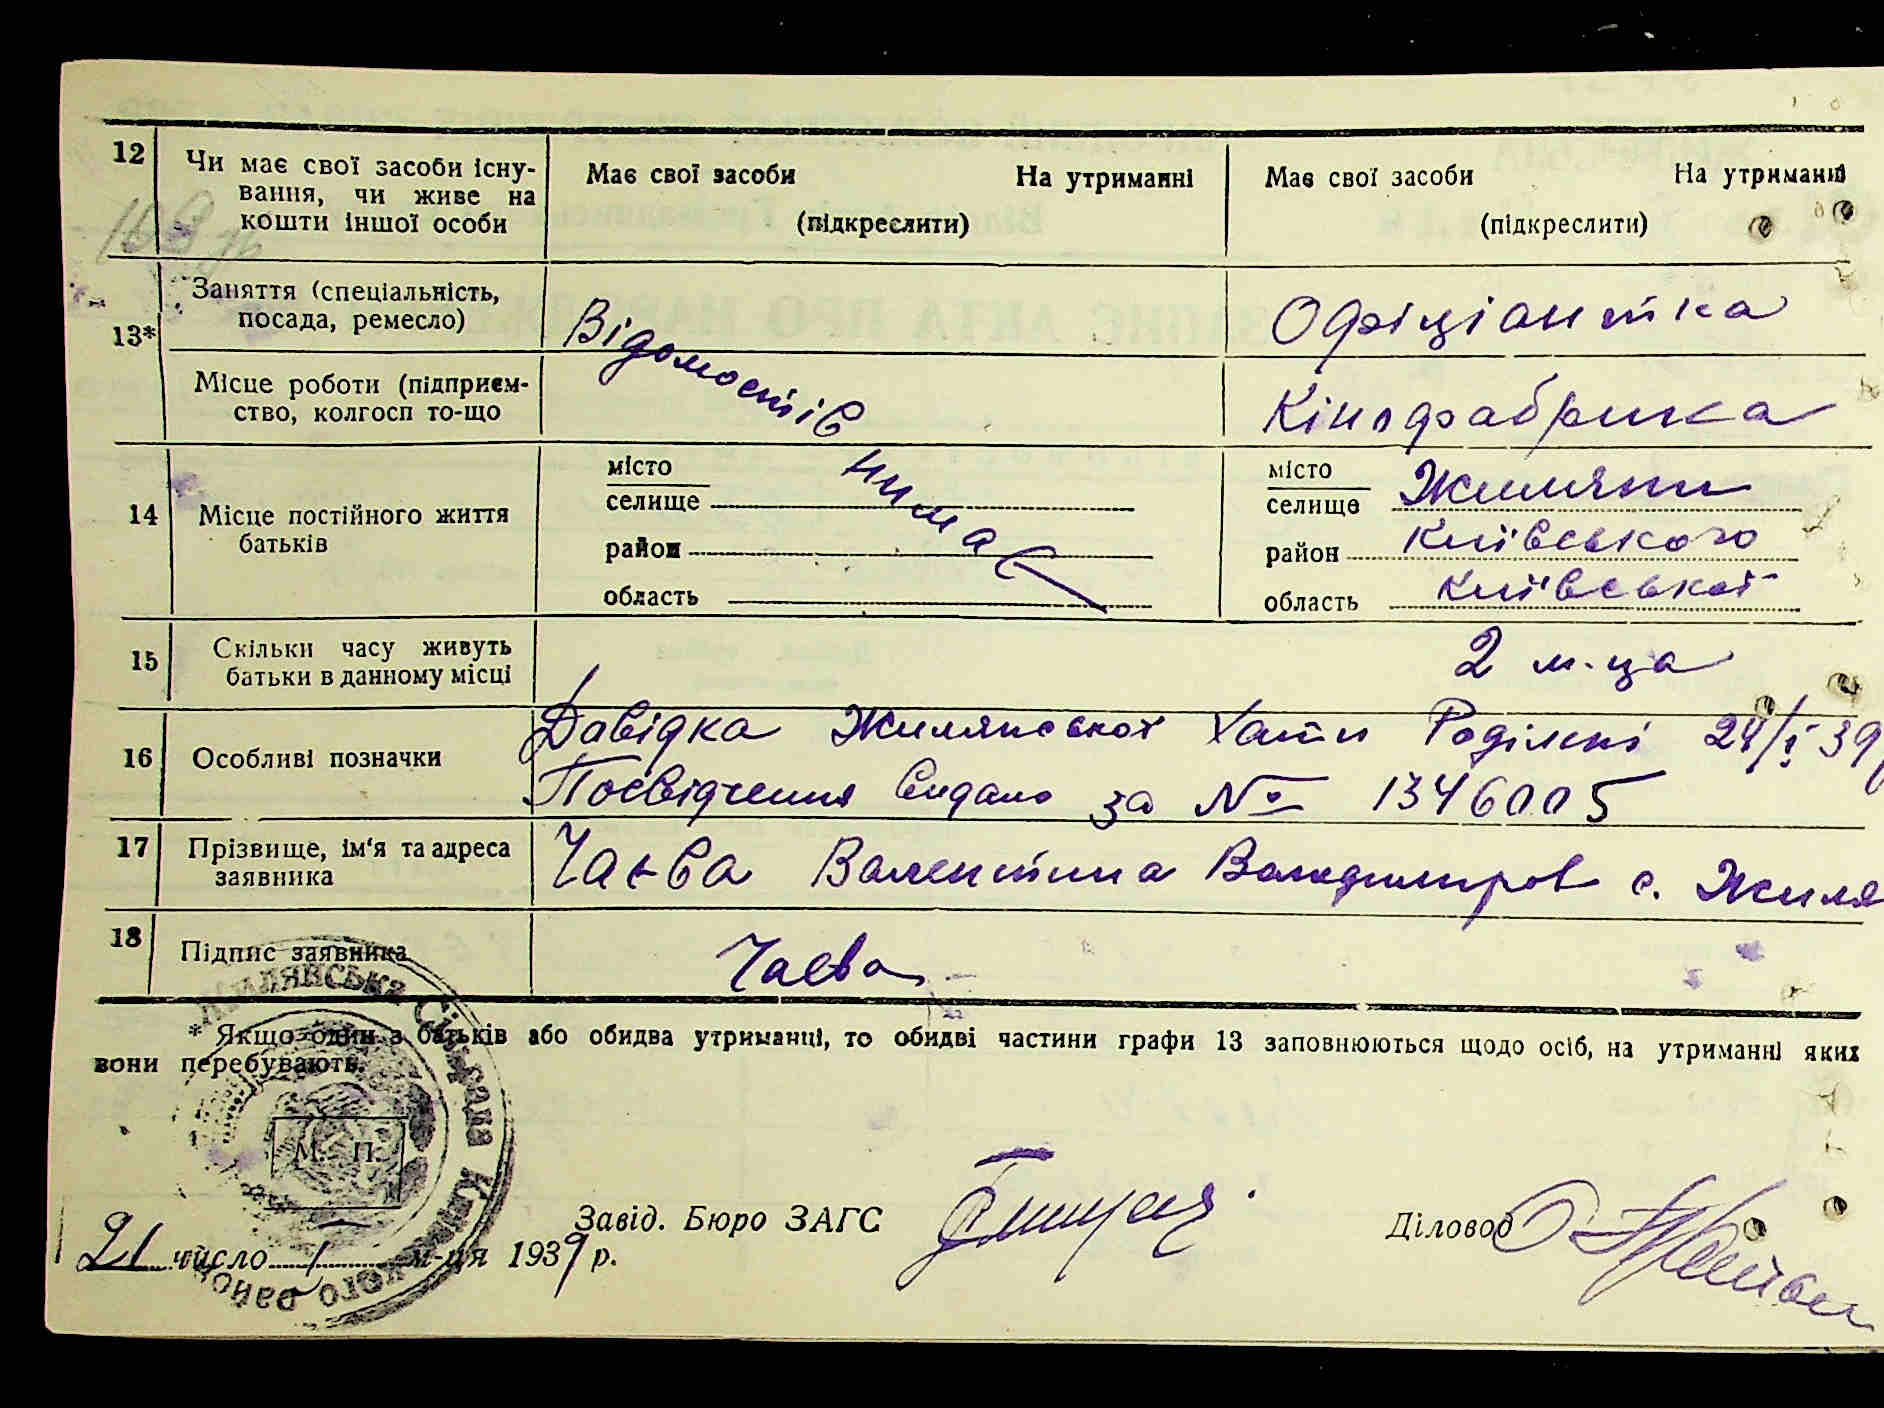 12
Чи має свої засоби існу-
вання, чи живе на
кошти іншої особи
Має свої засоби На утриманні
(підкреслити)
Має свої засоби На утриманні
(підкреслити)
13*
Заняття (спеціальність,
посада, ремесло)
Відомостів нима
Офіціантка
Місце роботи (підприєм-
ство, колгосп то-що
Кінофабрика
14
Місце постійного життя
батьків
місто
селище
район
область
місто
селище Жиляни
район Київського
область Київської
15
Скільки часу живуть
батьки в данному місці
2 м-ца
16
Особливі позначки
Довідка Жилянської Хати Роділні 24/I 39
Посвідчення видано за № 1346005
17
Прізвище, ім'я та адреса
заявника
Чаєва Валентина Володимиров с. Жиля
18
Підпис заявника
Чаєва
* Якщо один з батьків або обидва утриманці, то обидві частини графи 13 заповнюються щодо осіб, на утриманні яких
вони перебувають.
Жилянська Сільрада Київського району
М. П.
Завід. Бюро ЗАГС
Діловод
21 число 1 м-ця 1939 р.